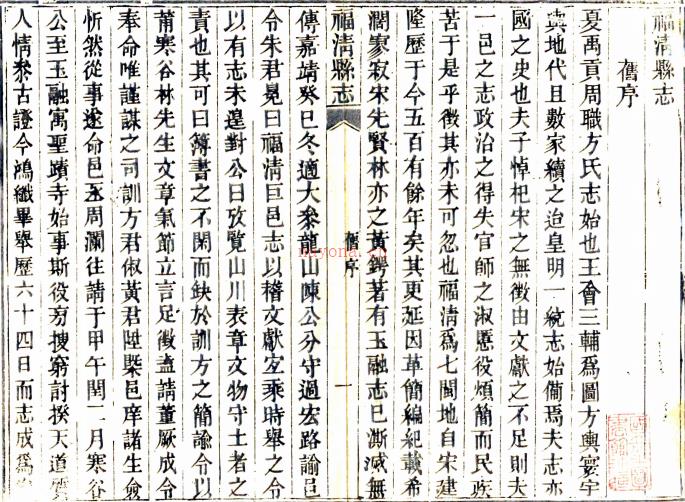 福清縣志
舊序
夏禹貢周職方氏志始也王會三輔爲圖方輿寰宇
與地代且數家續之迨皇明一統志始備焉夫志亦
國之史也夫子悼杞宋之無徵由文獻之不足則夫
一邑之志政治之得失官師之淑慝役煩簡而民疾
苦于是乎徵其亦未可忽也福淸爲七閩地自宋建
隆歷于今五百有餘年矣其更延因革簡編紀載希
濶寥寂宋先賢林亦之黃鍔著有玉融志已漸滅無
福淸縣志
舊序
一
傳嘉靖癸巳冬適大叅龍山陳公分守過宏路諭邑
令朱君晃曰福淸巨邑志以稽文獻宜乘時舉之令
以有志未遑對公曰攷覽山川表章文物守土者之
責也其可曰簿書之不閑而缺於訓方之簡諭令以
莆寒谷林先生文章氣節立言足徵盍請董厥成令
奉命唯謹謀之司訓方君俶黃君陞槩邑庠諸生僉
忻然從事遂命邑丞周瀾往請于甲午閏二月寒谷
公至玉融寓聖蹟寺始事斯役旁搜窮討揆天道察
人情叅古證今鴻纖畢舉歷六十四日而志成爲